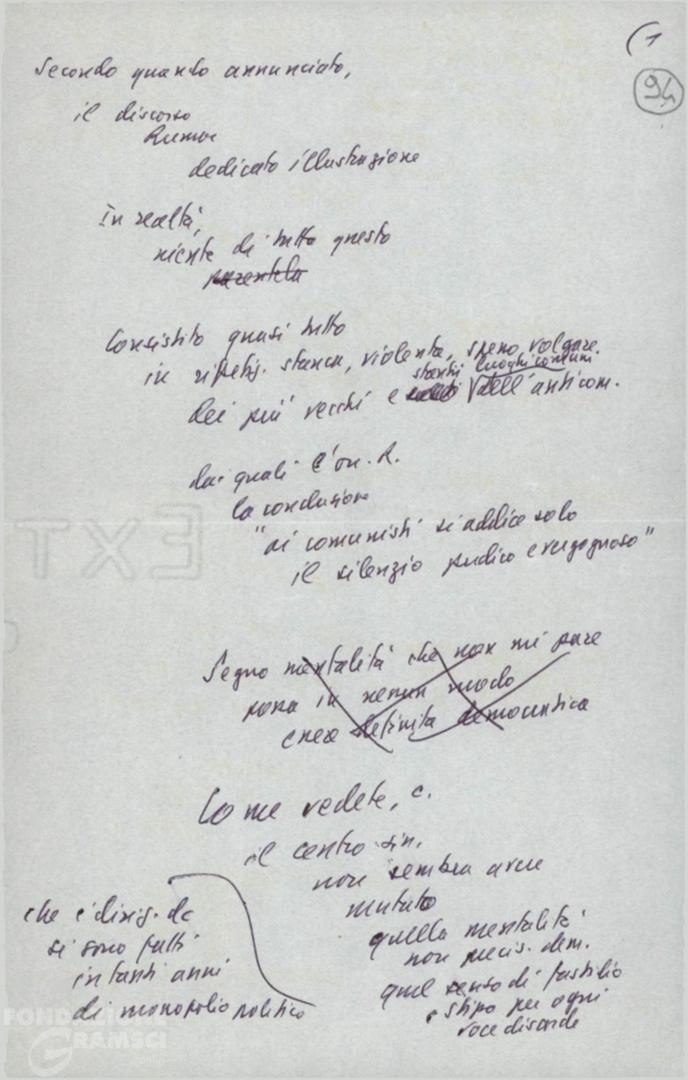 (1
94
Secondo quanto annunciato,
il discorso
Rumor
dedicato illustrazione
In realtà,
niente di tutto questo
parentela
Consistito quasi tutto
in ripetiz. stanca, violenta, spesso volgare.
stantii luoghi comuni
dei più vecchi e dell'anticom.
dai quali l'on. R.
la conclusione
"ai comunisti si addice solo
il silenzio pudico e vergognoso"
Segno mentalità che non mi pare
possa in nessun modo
essere definita democratica
Come vedete, c.
il centro sin.
non sembra aver
mutato
quella mentalità
non precis. dem.
quel senso di fastidio
e stizza per ogni
voce discorde
che i dirig. dc
si sono fatti
in tanti anni
di monopolio politico
EXT
FONDAZIONE
GRAMSCI